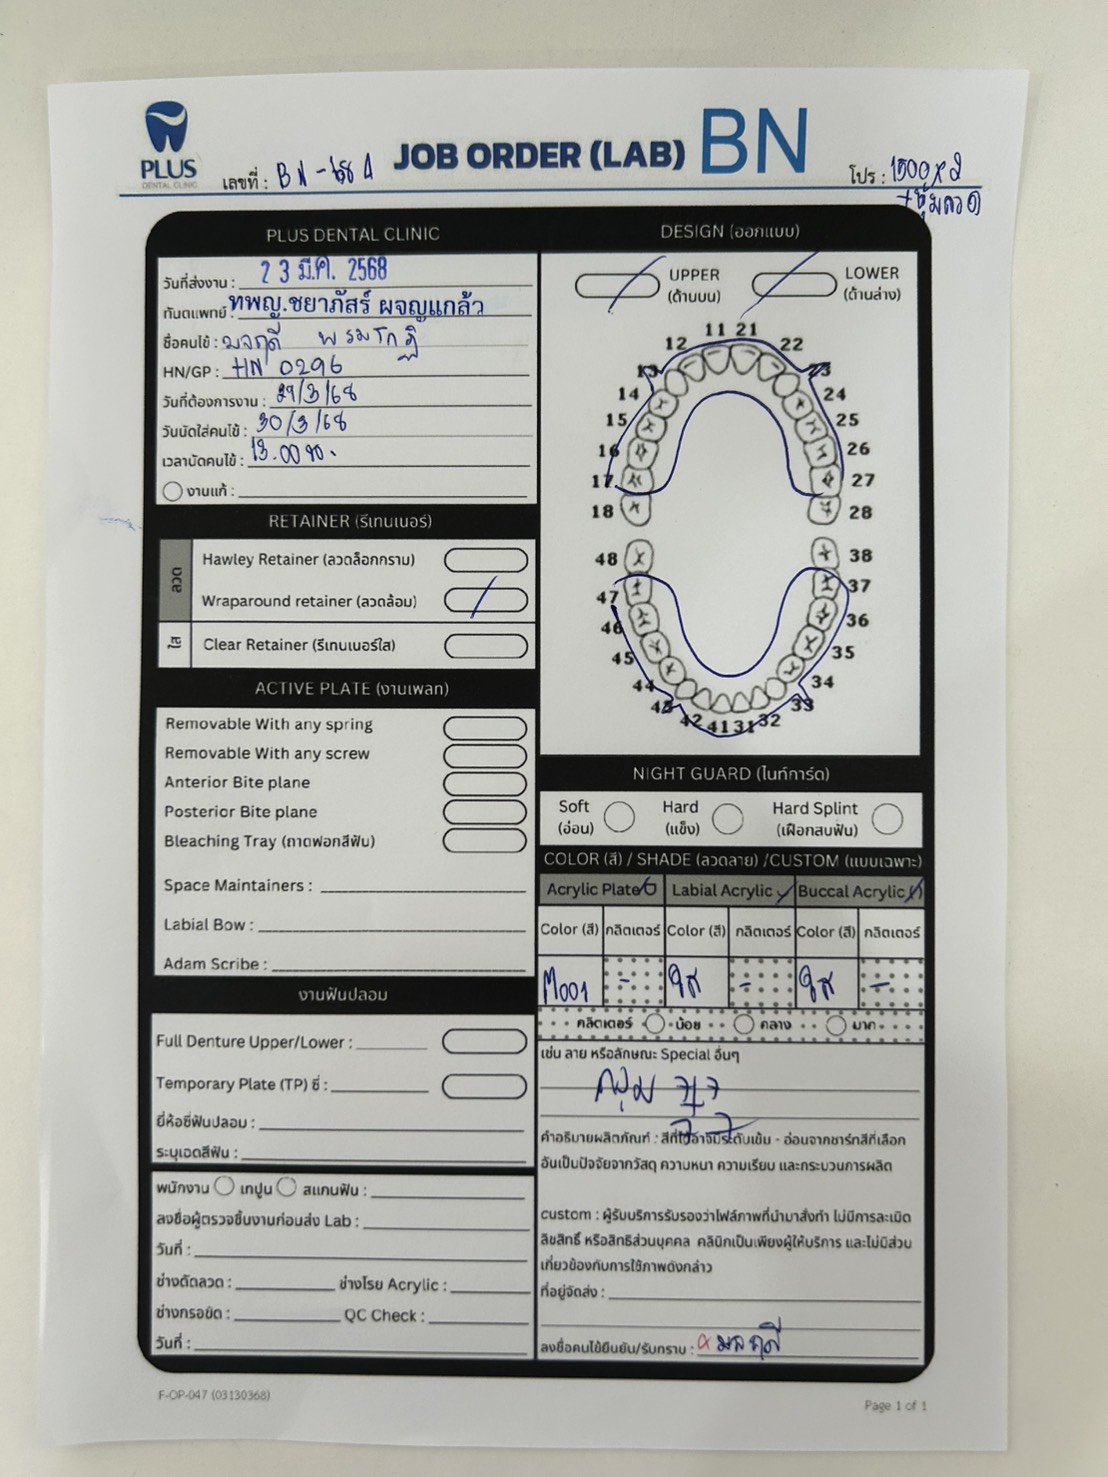 PLUS
DENTAL CLINIC
เลขที่ : BN-68 A
JOB ORDER (LAB) BN
โปร : 1500 x 2
+ชุ้มลวด
PLUS DENTAL CLINIC
วันที่ส่งงาน : 23 มี.ค. 2568
ทันตแพทย์ : ทพญ.ชยาภัสร์ ผจญแกล้ว
ชื่อคนไข้ : มลฤดี
HN/GP : HN 0296
วันที่ต้องการงาน : 29/3/68
วันนัดใส่คนไข้ : 30/3/68
เวลานัดคนไข้ : 13.00 น.
งานแก้ :
RETAINER (รีเทนเนอร์)
ลวด
Hawley Retainer (ลวดล็อกกราม)
Wraparound retainer (ลวดล้อม)
ใส
Clear Retainer (รีเทนเนอร์ใส)
ACTIVE PLATE (งานเพลท)
Removable With any spring
Removable With any screw
Anterior Bite plane
Posterior Bite plane
Bleaching Tray (ถาดฟอกสีฟัน)
Space Maintainers :
Labial Bow :
Adam Scribe :
งานฟันปลอม
Full Denture Upper/Lower :
Temporary Plate (TP) ซี่ :
ยี่ห้อซี่ฟันปลอม :
ระบุเฉดสีฟัน :
พนักงาน เทปูน สแกนฟัน :
ลงชื่อผู้ตรวจชิ้นงานก่อนส่ง Lab :
วันที่ :
ช่างดัดลวด : ช่างโรย Acrylic :
ช่างกรอขัด : QC Check :
วันที่ :
DESIGN (ออกแบบ)
UPPER
(ด้านบน)
LOWER
(ด้านล่าง)
11 21
12 22
13 23
14 24
15 25
16 26
17 27
18 28
48 38
47 37
46 36
45 35
44 34
43 33
42 41 31 32
NIGHT GUARD (ไนท์การ์ด)
Soft
(อ่อน)
Hard
(แข็ง)
Hard Splint
(เฝือกสบฟัน)
COLOR (สี) / SHADE (ลวดลาย) /CUSTOM (แบบเฉพาะ)
Acrylic Plate Labial Acrylic Buccal Acrylic
Color (สี) กลิตเตอร์ Color (สี) กลิตเตอร์ Color (สี) กลิตเตอร์
M001 - ใส - ใส -
กลิตเตอร์ น้อย กลาง มาก
เช่น ลาย หรือลักษณะ Special อื่นๆ
คลุม 7 7
7 7
คำอธิบายผลิตภัณฑ์ : สีที่ได้อาจมีระดับเข้ม - อ่อนจากชาร์ทสีที่เลือก
อันเป็นปัจจัยจากวัสดุ ความหนา ความเรียบ และกระบวนการผลิต
custom : ผู้รับบริการรับรองว่าไฟล์ภาพที่นำมาสั่งทำ ไม่มีการละเมิด
ลิขสิทธิ์ หรือสิทธิส่วนบุคคล คลินิกเป็นเพียงผู้ให้บริการ และไม่มีส่วน
เกี่ยวข้องกับการใช้ภาพดังกล่าว
ที่อยู่จัดส่ง :
ลงชื่อคนไข้ยืนยัน/รับทราบ : มลฤดี
F-OP-047 (03130368)
Page 1 of 1